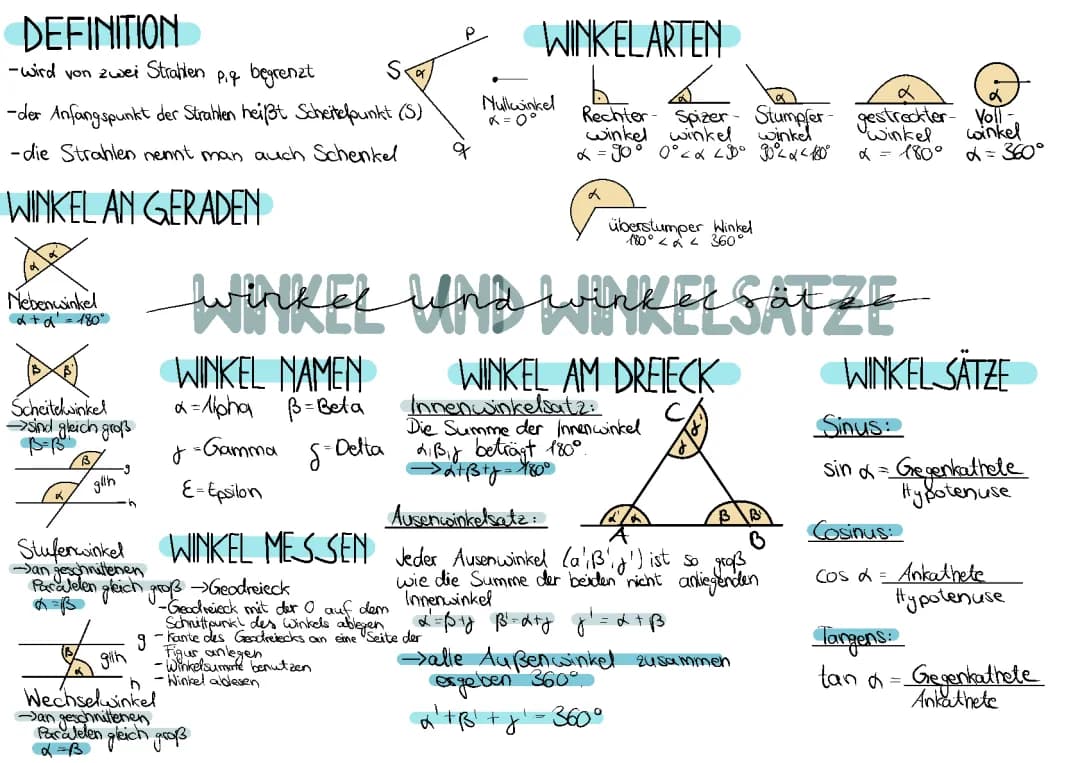 DEFINITION
-wird von zwei Strahlen p,q begrenzt
-der Anfangspunkt der Strahlen heißt Scheitelpunkt (S)
-die Strahlen nennt man auch Schenkel
S
α
p
q
WINKELARTEN
Nullwinkel
α = 0°
Rechter-
winkel
α = 90°
α
Spizer-
winkel
0° < α < 90°
α
Stumpfer-
winkel
90° < α < 180°
α
gestreckter-
winkel
α = 180°
α
Voll-
winkel
α = 360°
α
überstumper Winkel
180° < α < 360°
WINKEL AN GERADEN
α α'
Nebenwinkel
α + α' = 180°
β β'
Scheitelwinkel
→sind gleich groß
β=β'
β
g
g||h
α
h
Stufenwinkel
→an geschnittenen
Paralelen gleich groß
α=β
g
β
g||h
α
h
Wechselwinkel
→an geschnittenen
Paralelen gleich groß
α=β
WINKEL UND WINKELSÄTZE
winkel und winkelsätze
WINKEL NAMEN
α = Alpha β = Beta
γ = Gamma δ = Delta
ε = Epsilon
WINKEL MESSEN
→Geodreieck
-Geodreieck mit der 0 auf dem
Schnittpunkt des Winkels ablegen
- Kante des Geodreiecks an eine Seite der
Figur anlegen
- Winkelsumme benutzen
- Winkel ablesen
WINKEL AM DREIECK
Innenwinkelsatz:
Die Summe der Innenwinkel
α,β,γ beträgt 180°.
→α+β+γ = 180°
C
γ γ'
α' α
β β'
A
B
Ausenwinkelsatz:
Jeder Ausenwinkel (α',β',γ') ist so groß
wie die Summe der beiden nicht anliegenden
Innenwinkel
α'=β+γ β'=α+γ γ' = α + β
→alle Außenwinkel zusammen
ergeben 360°.
α'+β'+γ' = 360°
WINKELSÄTZE
Sinus:
sin α = Gegenkathete
Hypotenuse
Cosinus:
cos α = Ankathete
Hypotenuse
Tangens:
tan α = Gegenkathete
Ankathete